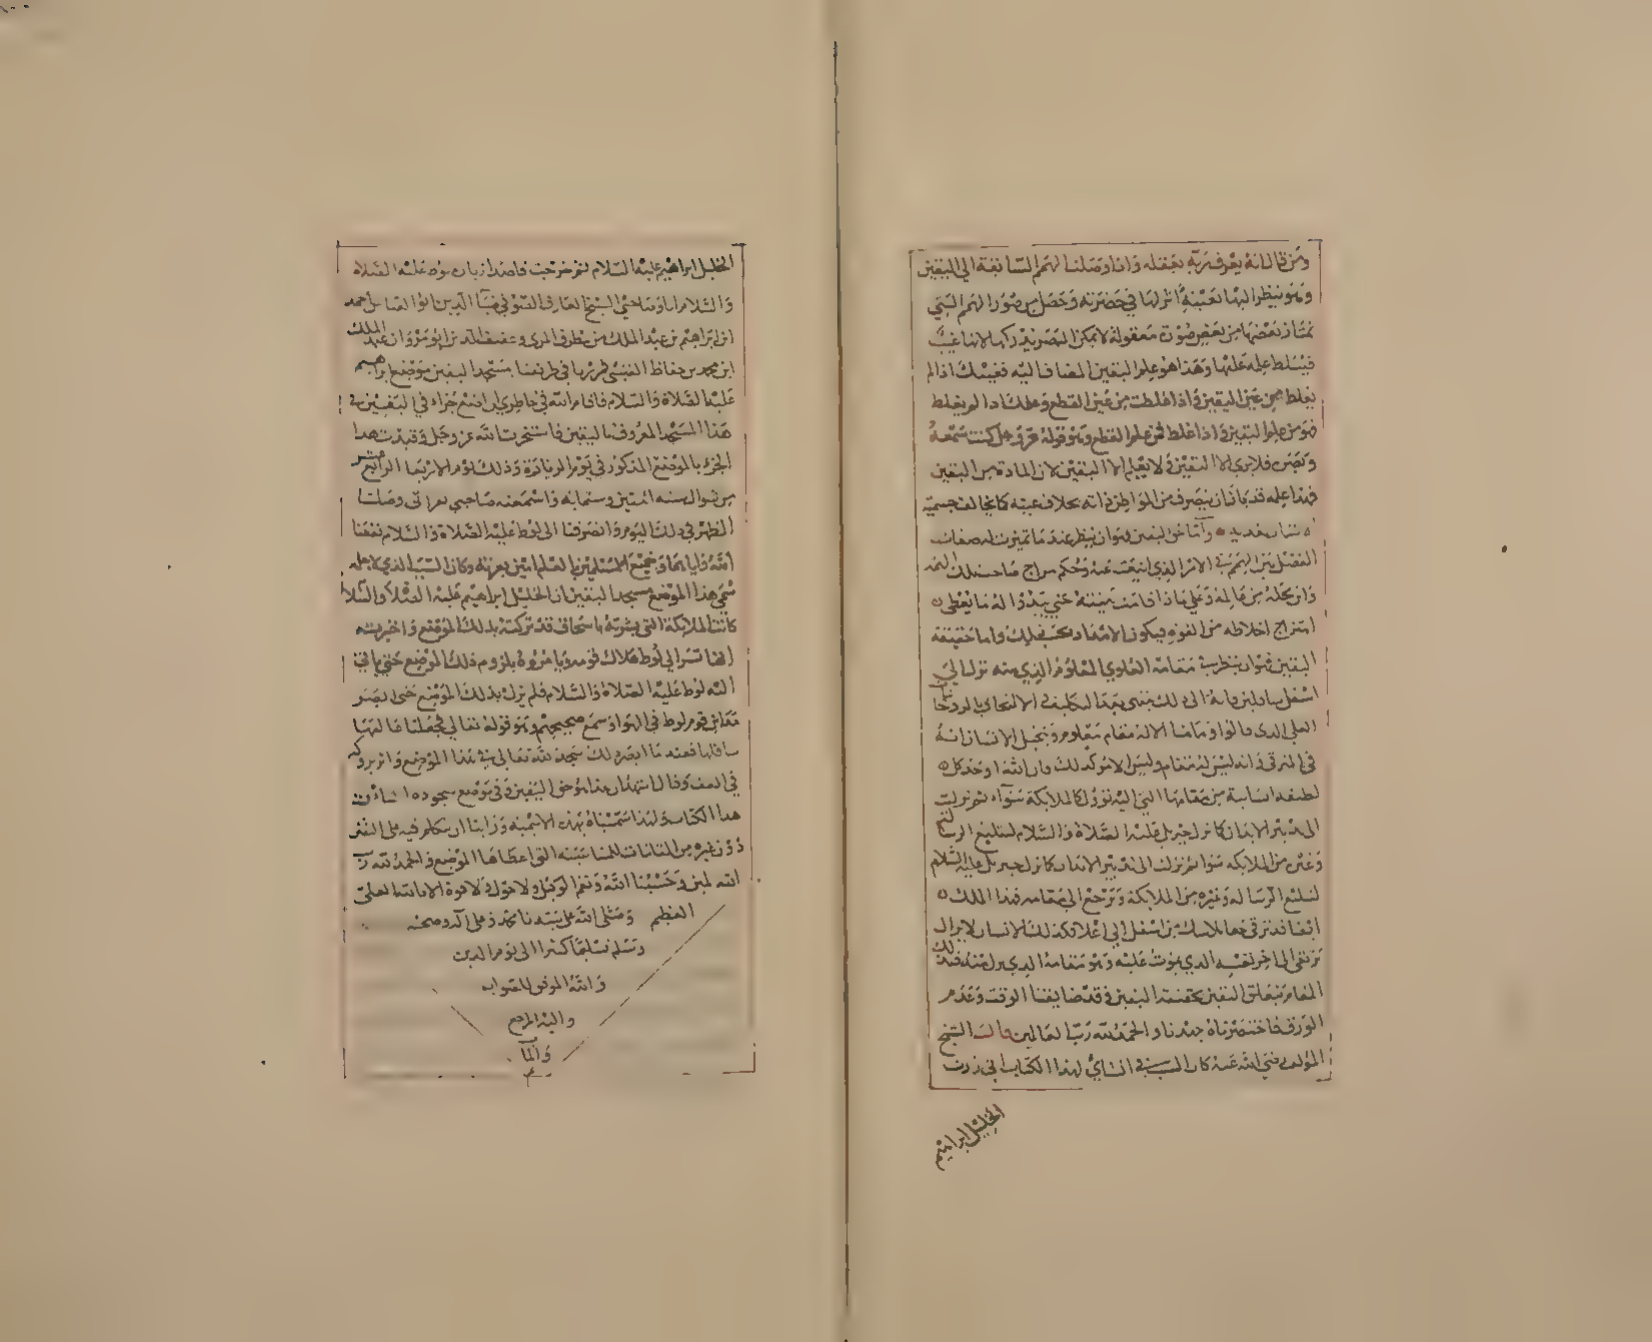 ومن قال انه يعرف ربه بعقله واذا وصلنا لهمم السابقة الى اليقين
وهو ينظر اليها بعينه انزلها في حضرته وحصل من صور الهمم التي
تمتاز بعضها من بعض صورة معقولة لا يمكن البصر يدركها لانها غيب
فيسلط علمه عليها وهذا هو علم اليقين المضاف اليه فعينك اذا لم
يغلط عين اليقين واذا غلطت من عين القطع وعلمك اذا لم يغلط
فهو من علم اليقين واذا غلط فمن علم القطع وهو قوله عز وجل كنت سمعه
وبصره فلا يرى الا اليقين ولا يعلم الا اليقين لان المادة من اليقين
فهذا علمه قد بدا ان يتصرف من المواطن ذاته بخلاف عينه
واما حق اليقين فهو ان ينظر عندما تميزت له صفات
الفضل بين الهمم في الامر الذي انبعثت عنه وحكم مزاج صاحب تلك الهمة
وامتزاج اخلاطه من القوة فيكون الامداد بحسب ذلك واما حقيقة
اليقين فهو ان ينظر في مقامه العلوي المعلوم الذي منه نزل الى
اسفل سافلين
العلى الذي قالوا وما منا الا له مقام معلوم ويتخيل الانسان انه
في الترقي وانه ليس له مقام وليس الامر كذلك فان الله اوجد كل
لطيفة انسانية من مقامها التي اليه تؤول كالملائكة سواء ثم نزلت
الى تدبير الابدان كما نزل جبريل عليه الصلاة والسلام لتبليغ الرسالة
وغيره من الملائكة سواء ثم نزلت الى تدبير الابدان كما نزل جبريل عليه السلام
لتبليغ الرسالة وغيره من الملائكة وترجع الى مقامه فهذا الملك
ايضا قد ترقى من اسفل الى اعلا فكذلك الانسان لا يزال
يرتقي الى اخر نفسه الذي يموت عليه وهو مقامه الذي نزل منه فذلك
المقام يتعلق اليقين بحقيقة اليقين وقد ضايقنا الوقت وعدم
الورق فاختصرناه جدنا والحمد لله رب العالمين قال الشيخ
المؤلف رضي الله عنه كان السبب في انشائي لهذا الكتاب اني زرت
الخليل ابراهيم
الخليل ابراهيم عليه السلام ثم خرجت قاصدا زيارة لوط عليه الصلاة
والسلام انا وصاحبي الشيخ العارف الصوفي ضيا الدين ابو العباس احمد
ابن ابراهيم بن عبد الملك بن مطرف المري وعفيف الدين ابو مروان عبد الملك
ابن محمد بن حفاظ القيسي فمررنا في طريقنا بمسجد اليقين موضع ابراهيم
عليه الصلاة والسلام فاقام الله في خاطري ان اضع جزءا في اليقين في
هذا المسجد المعروف باليقين فاستخرت الله عز وجل وقيدت هذا
الجزء بالموضع المذكور في يوم الزيارة وذلك يوم الاربعا الرابع عشر
من شوال سنه اثنتين وستمائه واسمعته صاحبي بقراتي وصلينا
الظهر في ذلك اليوم وانصرفنا الى لوط عليه الصلاة والسلام نفعنا
الله واياهما وجميع المسلمين بالعلم امين بعزته وكان السبب الذي لاجله
سمي هذا الموضع مسجد اليقين ان الخليل ابراهيم عليه الصلاة والسلام
كانت الملائكة التي بشرته باسحاق قد تركته بذلك الموضع واخبرته
انها تسير الى لوط هلاك قومه ويامروه بلزوم ذلك الموضع حتى ياتي
اليه لوط عليه الصلاة والسلام فلم يزل بذلك الموضع حتى ابصر
مداين قوم لوط في الهواء وسمع ضجيجهم وهو قوله تعالى فجعلنا عاليها
سافلها فعند ما ابصر ذلك سجد لله تعالى في هذا الموضع واثر بروكه
في الصف وقال اشهد ان هذا هو حق اليقين وفي موضع سجوده انشأت
هذا الكتاب ولهذا سميناه بهذه الاسمية وراينا ان نتكلم فيه على اليقين
دون غيره من المقامات للمناسبة التي اعطاها الموضع والحمد لله رب
العلمين وحسبنا الله ونعم الوكيل ولا حول ولا قوة الا بالله العلي
العظيم وصلى الله على سيدنا محمد وعلى اله وصحبه
وسلم تسليما كثيرا الى يوم الدين
والله الموفق للصواب
واليه المرجع
والمآب